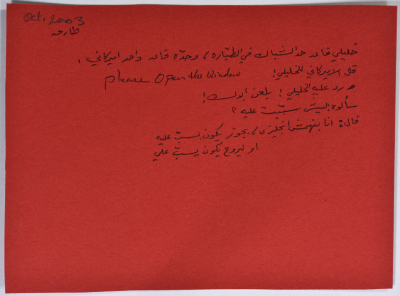 Oct. 3
طارق
خليلي قاعد حد الشباك في الطيارة، وحدّه قاعد واحد امريكاني،
قله الامريكاني للخليلي: please open the window
رد عليه الخليلي: يلعن ابوك!
سألوه ليش سبّيت عليه؟
قال: انا بفهمش انجليزي، بجوز يكون بسبّ عليّ
او بيروح يكون يسبّ علي